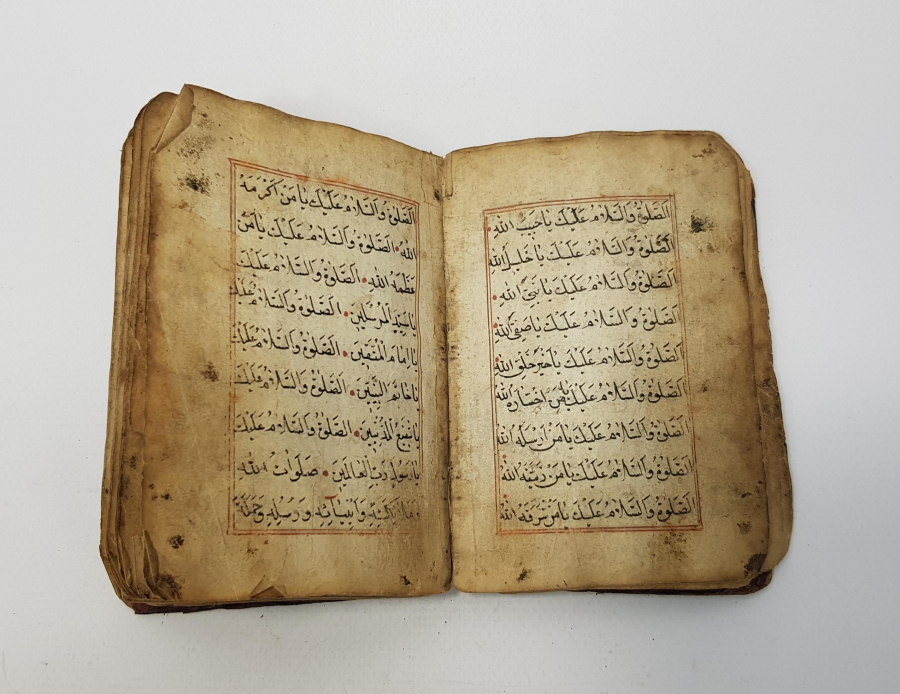 الصَّلٰوةُ وَالسَّلَامُ عَلَيْكَ يَا حَبِيبَ اللهِ
الصَّلٰوةُ وَالسَّلَامُ عَلَيْكَ يَا خَلِيلَ اللهِ
الصَّلٰوةُ وَالسَّلَامُ عَلَيْكَ يَا نَبِىَّ اللهِ
الصَّلٰوةُ وَالسَّلَامُ عَلَيْكَ يَا صَفِىَّ اللهِ
الصَّلٰوةُ وَالسَّلَامُ عَلَيْكَ يَا خَيْرَ خَلْقِ اللهِ
الصَّلٰوةُ وَالسَّلَامُ عَلَيْكَ يَا مَنِ اخْتَارَهُ اللهُ
الصَّلٰوةُ وَالسَّلَامُ عَلَيْكَ يَا مَنْ اَرْسَلَهُ اللهُ
الصَّلٰوةُ وَالسَّلَامُ عَلَيْكَ يَا مَنْ زَيَّنَهُ اللهُ
الصَّلٰوةُ وَالسَّلَامُ عَلَيْكَ يَا مَنْ شَرَّفَهُ اللهُ
الصَّلٰوةُ وَالسَّلَامُ عَلَيْكَ يَا مَنْ اَكْرَمَهُ
اللهُ الصَّلٰوةُ وَالسَّلَامُ عَلَيْكَ يَا مَنْ
عَظَّمَهُ اللهُ الصَّلٰوةُ وَالسَّلَامُ عَلَيْكَ
يَا سَيِّدَ الْمُرْسَلِينَ الصَّلٰوةُ وَالسَّلَامُ عَلَيْكَ
يَا اِمَامَ الْمُتَّقِينَ الصَّلٰوةُ وَالسَّلَامُ عَلَيْكَ
يَا خَاتَمَ النَّبِيِّينَ الصَّلٰوةُ وَالسَّلَامُ عَلَيْكَ
يَا شَفِيعَ الْمُذْنِبِينَ الصَّلٰوةُ وَالسَّلَامُ عَلَيْكَ
يَا رَسُولَ رَبِّ الْعَالَمِينَ صَلَوَاتُ اللهِ
وَمَلَائِكَتِهِ وَاَنْبِيَائِهِ وَرُسُلِهِ وَحَمَلَةِ